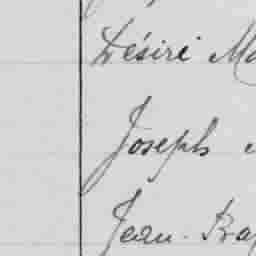 Désiré Ma
Joseph
Jean-Bap